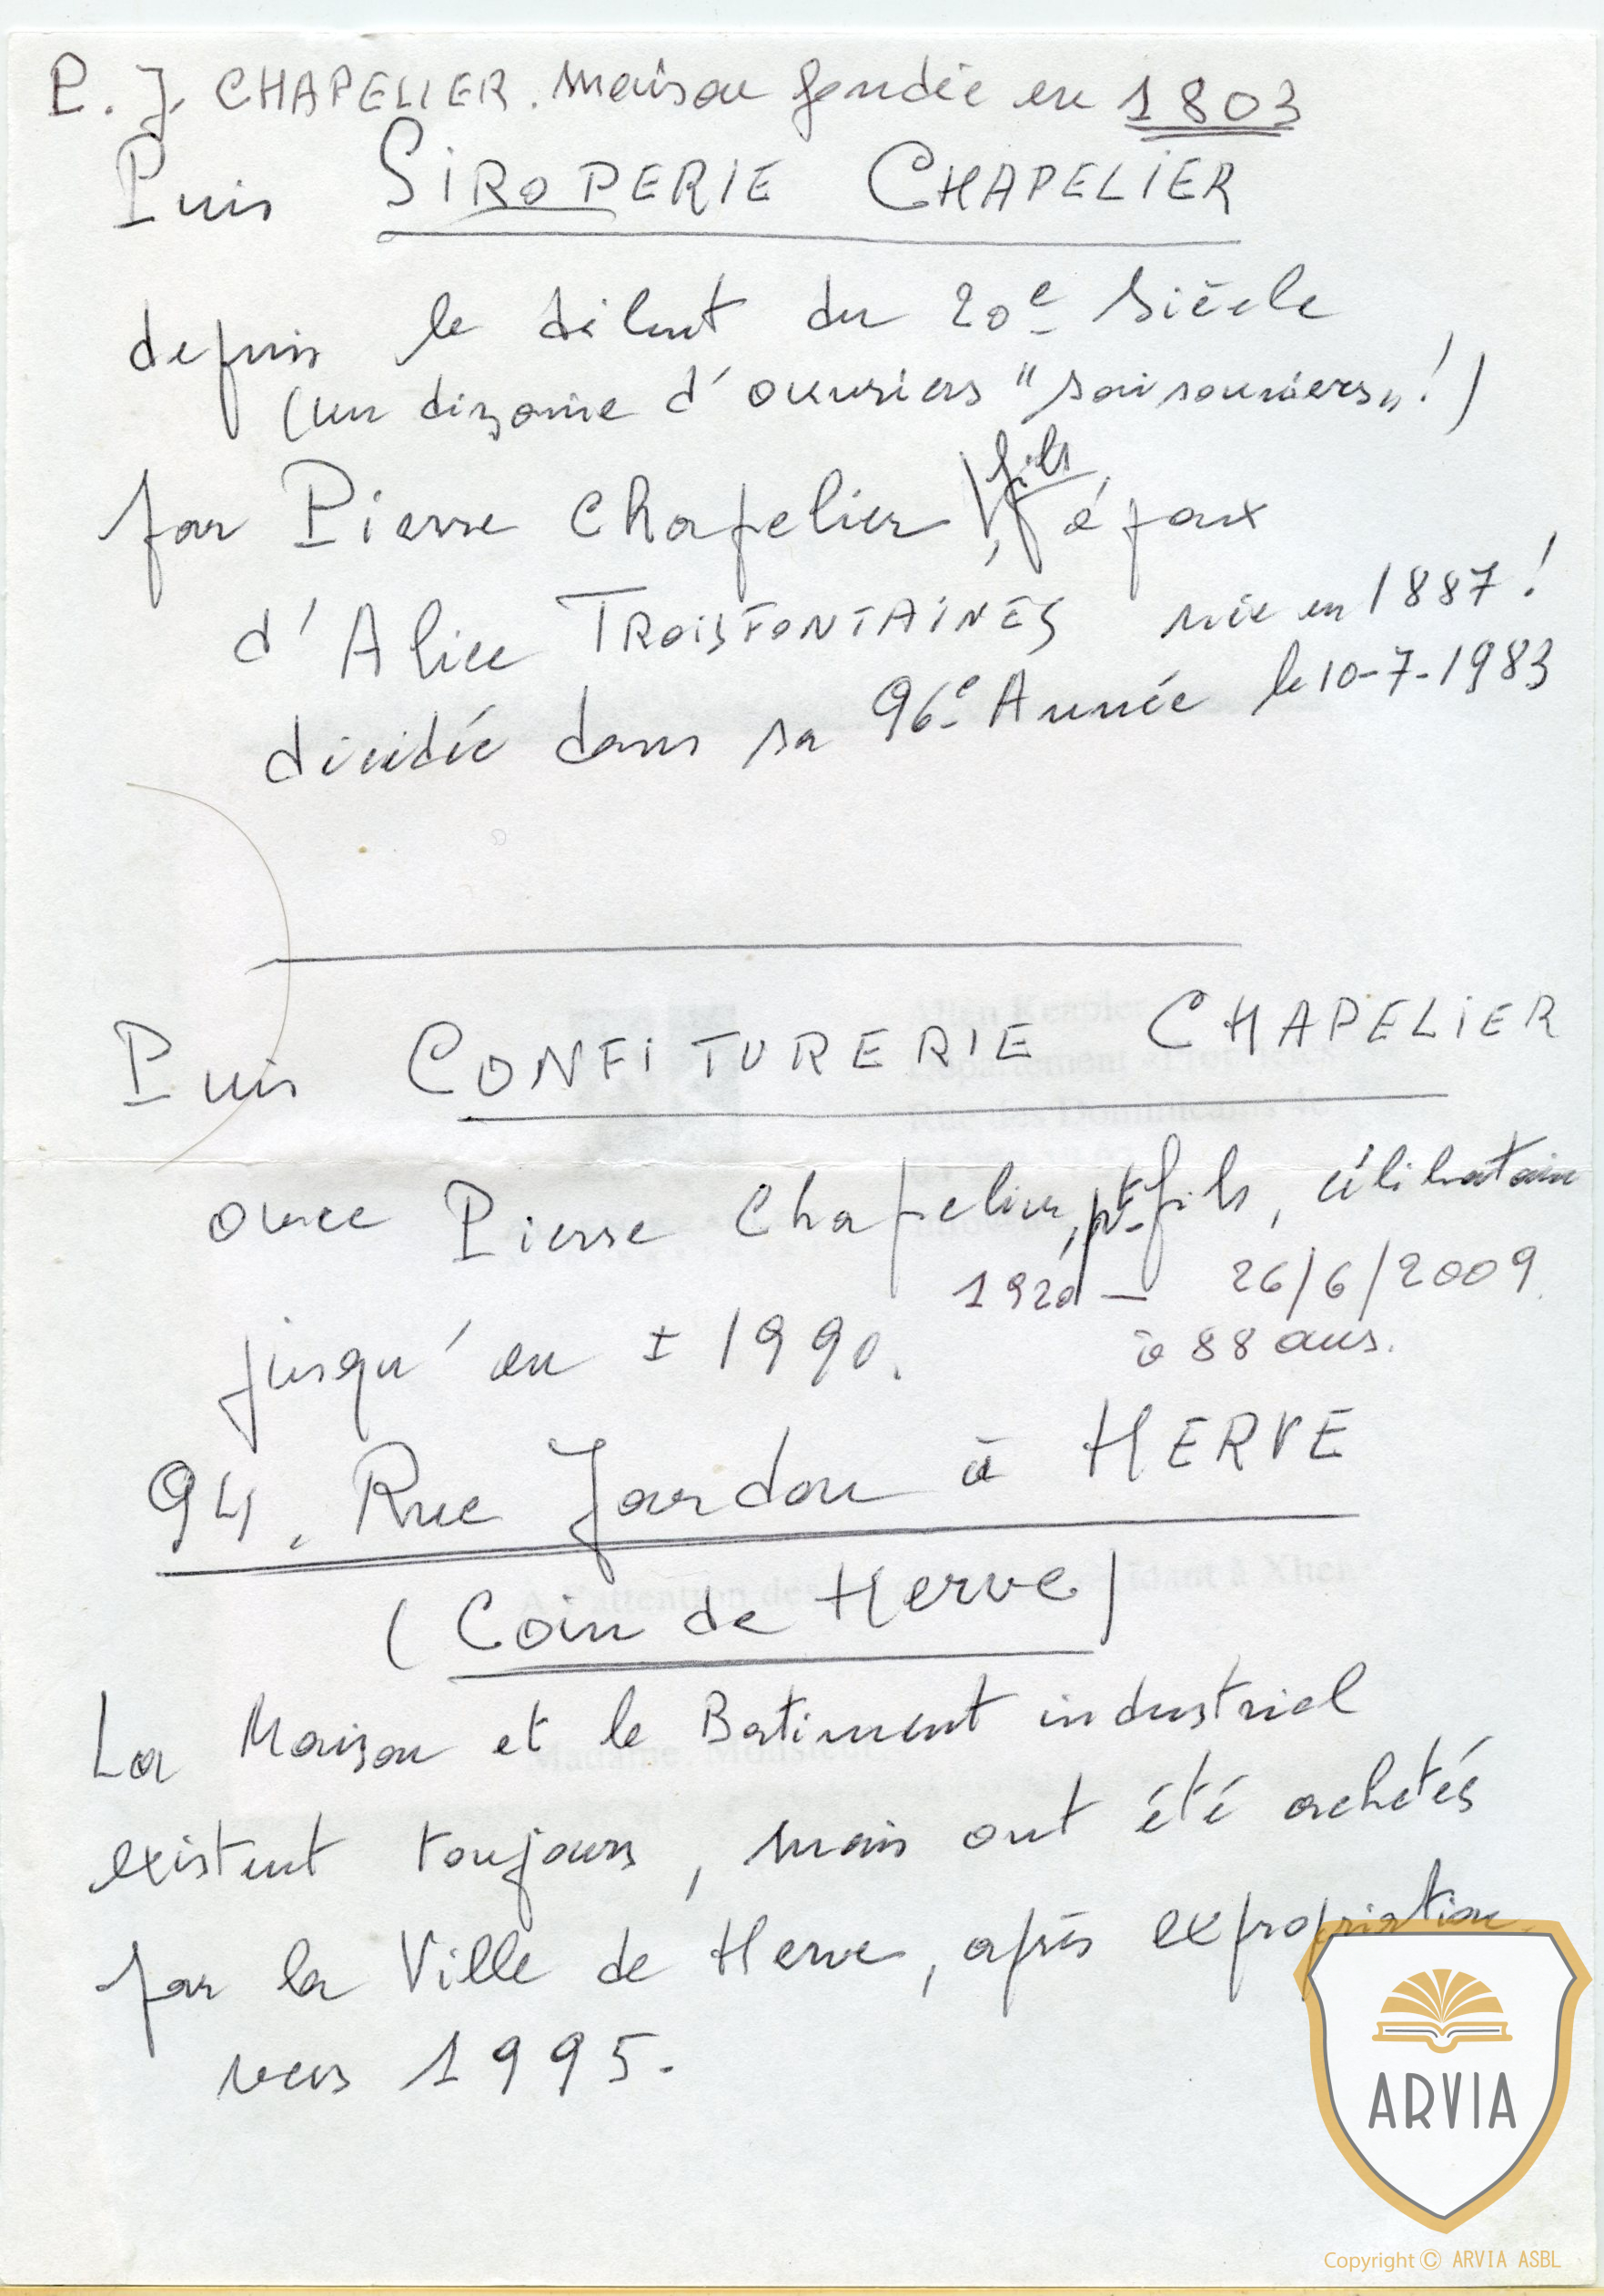 P. J. CHAPELIER. Maison fondée en 1803
Puis SIROPERIE CHAPELIER
depuis le début du 20e Siècle
(un dizaine d'ouvriers "saisonniers"!)
par Pierre Chapelier, fils, époux
d'Alice TROISFONTAINES née en 1887!
décédée dans sa 96e Année le 10-7-1983
Puis CONFITURERIE CHAPELIER
avec Pierre Chapelier, pt-fils, célibataire
1920 — 26/6/2009
jusqu'en ± 1990. à 88 ans.
94, Rue Jardon à HERVE
(Coin de Herve)
La Maison et le Batiment industriel
existent toujours, mais ont été achetés
par la Ville de Herve, après expropriation
vers 1995.
ARVIA
Copyright © ARVIA ASBL